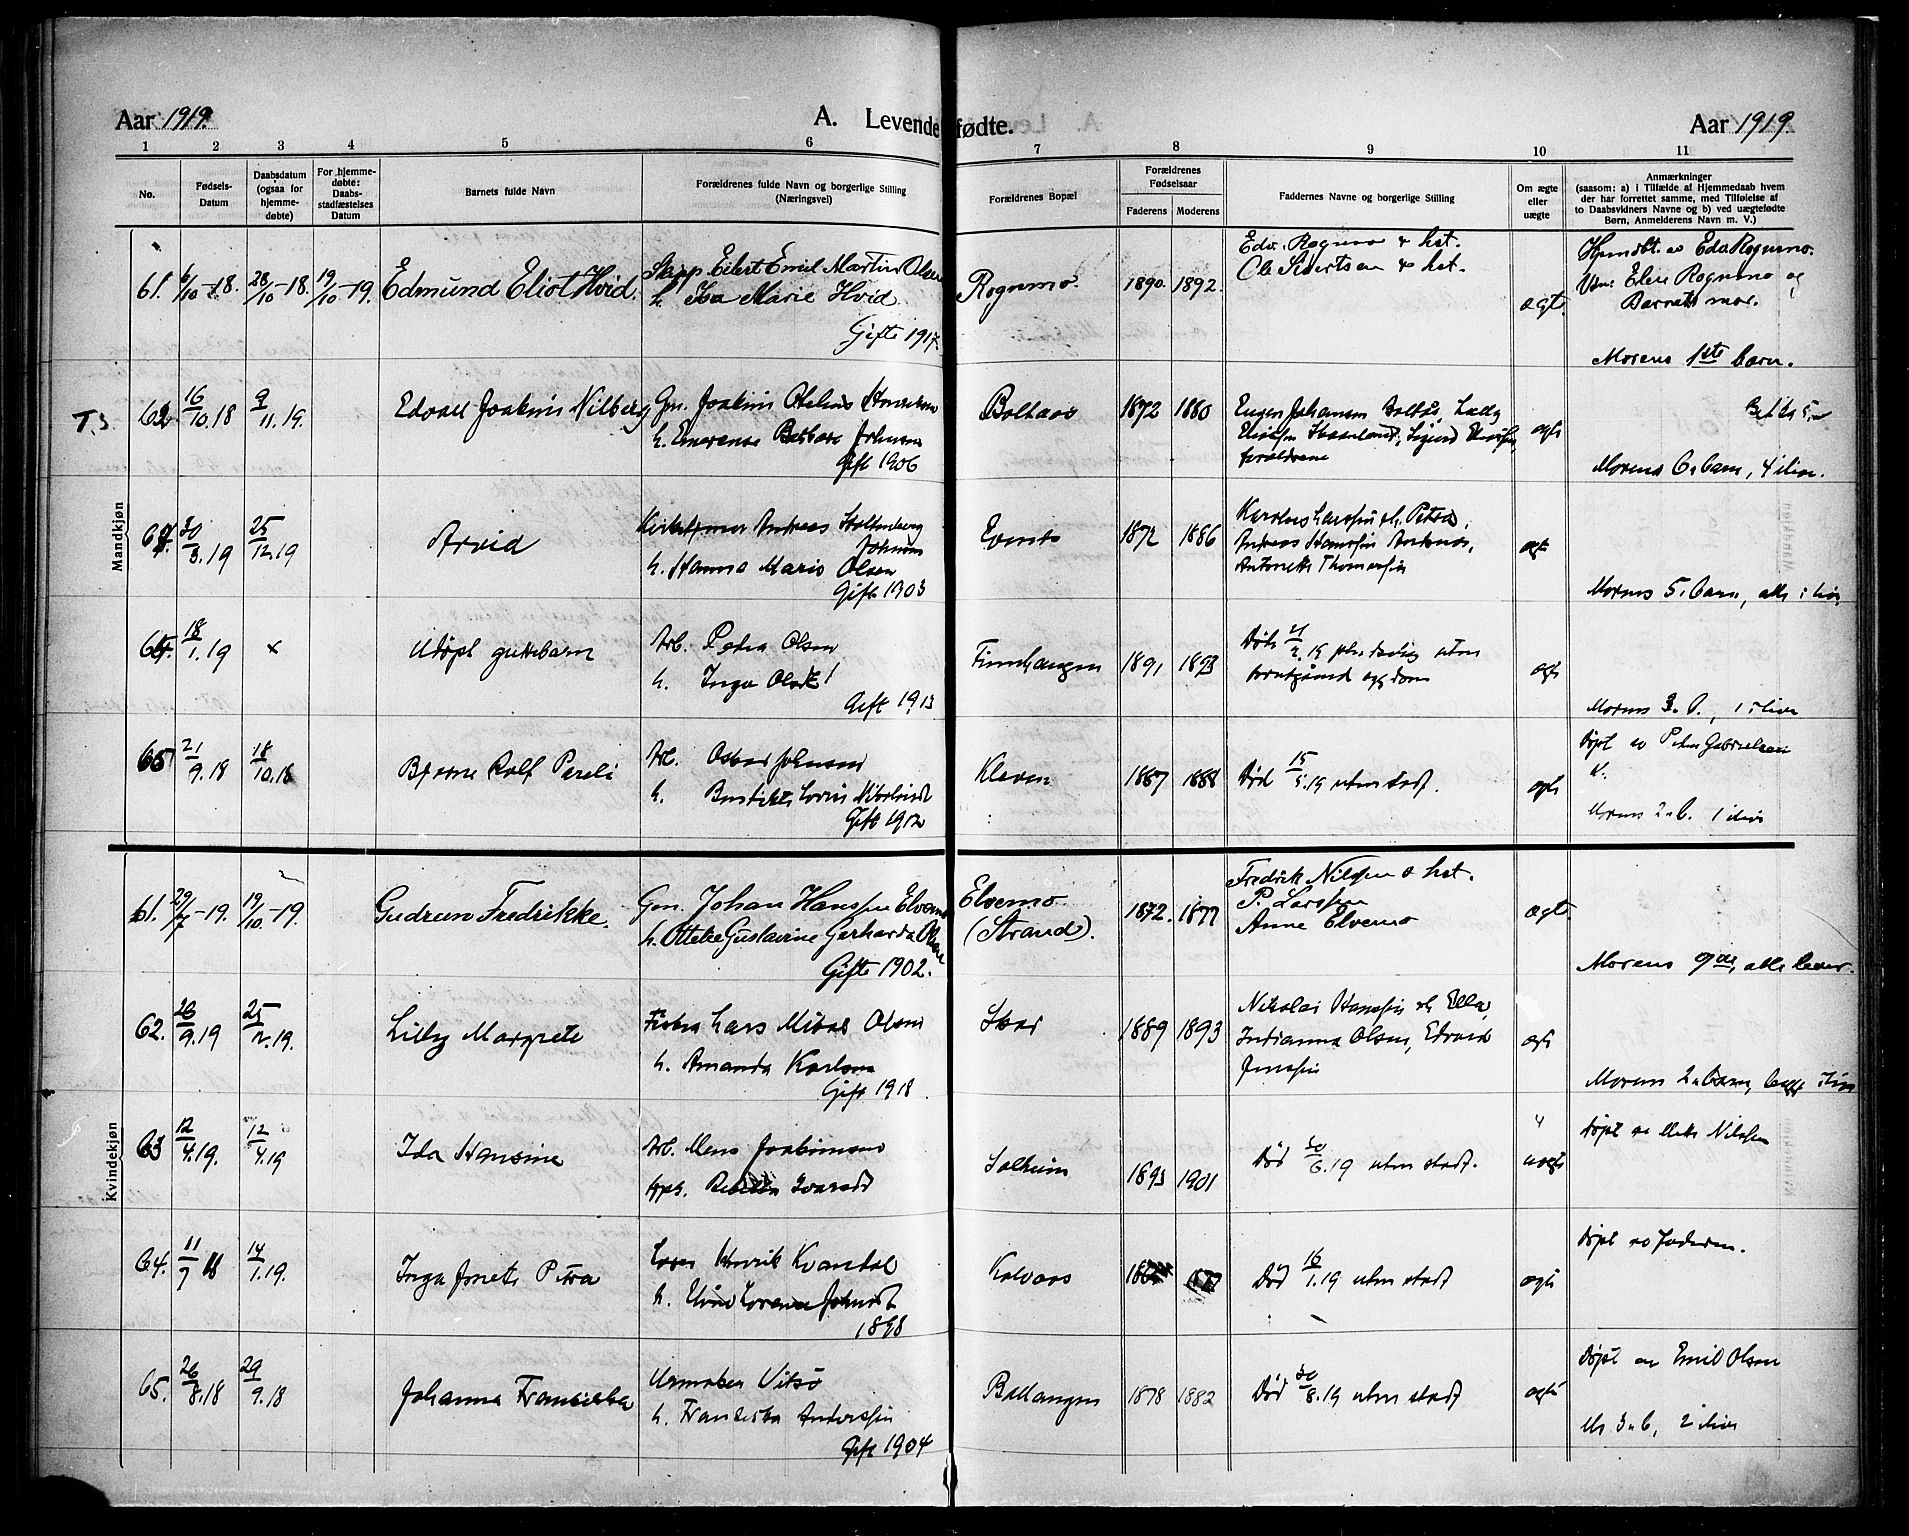 Aar 1919.
A. Levendefødte.
Aar 1919
1 2 3 4 5 6 7 8 9 10 11
No.
Fødsels-Datum
Daabsdatum (ogsaa for hjemme-døbte)
For hjemme-døbte: Daabs-stadfæstelses Datum
Barnets fulde Navn
Forældrenes fulde Navn og borgerlige Stilling (Næringsvei)
Forældrenes Bopæl
Forældrenes Fødselsaar
Faderens Moderens
Faddernes Navne og borgerlige Stilling
Om ægte eller uægte
Anmærkninger
(saasom: a) i Tilfælde af Hjemmedaab hvem
der har forrettet samme, med Tilføielse af
to Daabsvidners Navne og b) ved uægtefødte
Børn, Anmelderens Navn m. V.)
Mandkjøn
61. 6/10-18. 28/10-18. 19/10-19. Edmund Eliot Hvid.
Skipp Eilert Emil Martin Olsen
h. Ida Marie Hvid.
Gifte 1917.
Rognmo. 1890. 1892.
Edv. Rognmo & hst.
Ole Sivertsen & hst.
ægt.
Hjemdbt. av Edv. Rognmo.
Vin: Elen Rognmo og
Barnets mor.
Morens 1ste barn.
T.S. 62 16/10.18 9/11.19 Edvall Joakim Nilberg
Gm. Joakim
h. Emerense Barbara Johnsen
Gift 1906
Boltaas 1872 1880
Eugen Johansen
foreldrene
ægte
Morens 6. barn, 4 ilive.
30/3.19 25/12.19 Arvid
Andreas Stoltenberg
Johnsen
h. Hanna Marie Olsen
Gift 1903
Events 1872 1886
Karolus Larssen
Andreas Hanssen
Antonette Thomassen
ægt
Morens 5. barn, alle i live
64. 18/1.19 x Udøpt guttebarn
Arb. Peder Olsen
h. Inga Olsdt
Gift 1913
Finnhaugen 1891 1893
ægte
Morens 3. b., 1 i live
65 21/9.18 18/10.18 Bjarne Rolf Pareli
Arb. Oskar Johnsen
h.
Gift 1912
Kleven 1887 1888
Død 15/5.19 uten stadf.
ægte
Døpt av Peter Gabrielsen
K.
Morens 2. b. 1 ilive
Kvindekjøn
61. 29/7-19. 19/10-19. Gudrun Fredrikke.
Gm. Johan Hanssen Elvemo
h. Ottelie Gustavine Gerharda Olsen
Gifte 1902.
Elvemo
(Strand). 1872. 1877
Fredrik Nilssen & hst.
P. Larssen
Anne Elvemo
ægt.
Morens 9de, alle lever.
62. 26/9.19 25/12.19. Lilly Margrete
Fisker Lars Mikal Olsen
h. Amanda Karlsen
Gift 1918.
Skar 1889 1893
Nikolai Hanssen
Indianna Olsen, Edvard
Jenssen
ægte
Morens 2. barn, begge ilive
63 12/4.19. 12/4.19 Ida Hansine
Arb. Mons Joakimsen
Solheim 1893 1901
Død 30/6.19 uten stadf.
uægte
64. 11/7 18 14/1.19. Inga Jonette Petra
Lars Henrik Kvandal
h. Eline Lorense Johnsdt
1898
Kalvaas
Død 16/1.19 uten stadf
ægte
Døpt av faderen.
65. 26/8.18 29/9.18 Johanna Fransiska
Urmaker Vitsø
h. Fransiska Anderssen
Gift 1904
Ballangen 1878 1882
Død 30/8.19 uten stadf
ægte
Døpt av Emil Olsen
M 3. b, 2 ilive